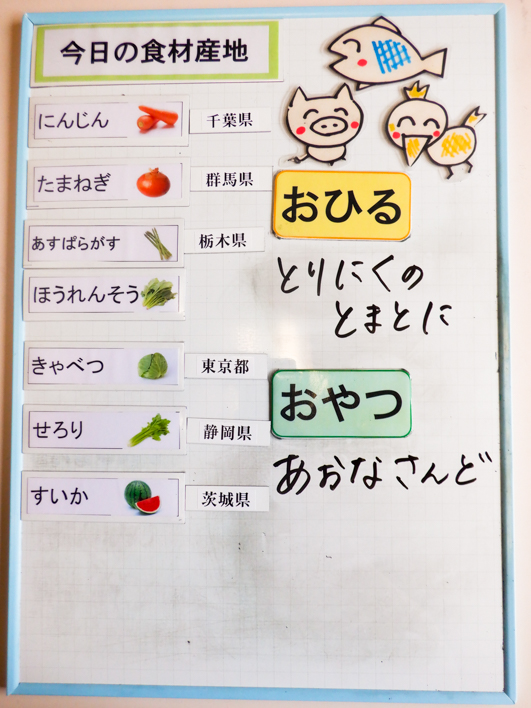 今日の食材産地
にんじん 千葉県
たまねぎ 群馬県
あすぱらがす 栃木県
ほうれんそう
きゃべつ 東京都
せろり 静岡県
すいか 茨城県
おひる
とりにくの
とまとに
おやつ
あおなさんど